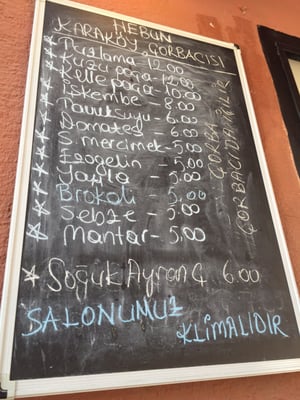 HEBUN
KARAKÖY ÇORBACISI
* Tuzlama - 12.00
* Kuzu paça - 12.00
* Kelle paça - 10.00
* işkembe - 8.00
* Tavuksuyu - 6.00
* Domates - 6.00
* S. mercimek - 5.00
* Ezogelin - 5.00
* Yayla - 5.00
* Brokoli - 5.00
* Sebze - 5.00
* Mantar - 5.00
ÇORBA
ÇORBACIDA İÇİLİR
* Soğuk Ayran 6.00
SALONUMUZ
KLİMALIDIR